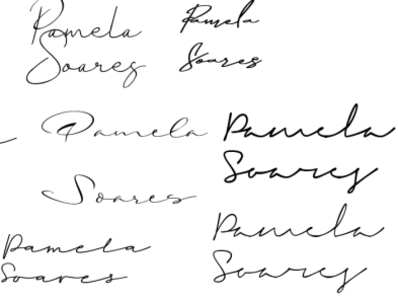 Pamela
Soares
Pamela
Soares
Pamela
Soares
Pamela
Soares
Pamela
Soares
Pamela
Soares